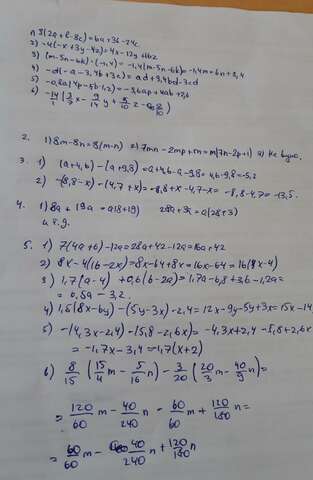 1) 3(2a+b-8c)=6a+3b-24c
2) -4(-x+3y-4z)=4x-12y+16z
3) (m-5n-6k)·(-1,4)=-1,4(m-5n-6k)=-1,4m+
4) -d(-a-3,4b+3c)=ad+3,4bd-3cd
5) -0,8a(4p-5b-1,2)=
6) -14/
2. 1) 8m-8n=8(m-n) 2) 7mn-2mp+m=m(7n-2p+1)
3. 1) (a+4,6)-(a+9,8)=a+4,6-a-9,8=4,6-9,8=-5,2
2) -(8,8-x)-(4,7+x)=-8,8+x-4,7-x=-8,8-4,7=-13,5.
4. 1) 18a+19a=a(18+19) 28a+3a=a(28+3)
и т.д.
5. 1) 7(4a+6)-12a=28a+42-12a=16a+42
2) 8x-4(16-2x)=8x-64+8x=16x-64=16(x-4)
3) 1,7(a-4)+0,6(6-2a)=1,7a-6,8+3,6-1,2a=
=0,5a-3,2.
4) 1,5(8x-6y)-(5y-3x)-2,4=12x-9y-5y+3x=15x-14
5) -(4,3x-2,4)-(5,8-2,6x)=-4,3x+2,4-5,8+2,6x
=-1,7x-3,4=-1,7(x+2)
6) 8/15(15/4m-5/16n)-3/20(20/3m-40/9n)=
=120/60m-40/240n-60/60m+120/180n=
=60/60m-40/240n+120/180n